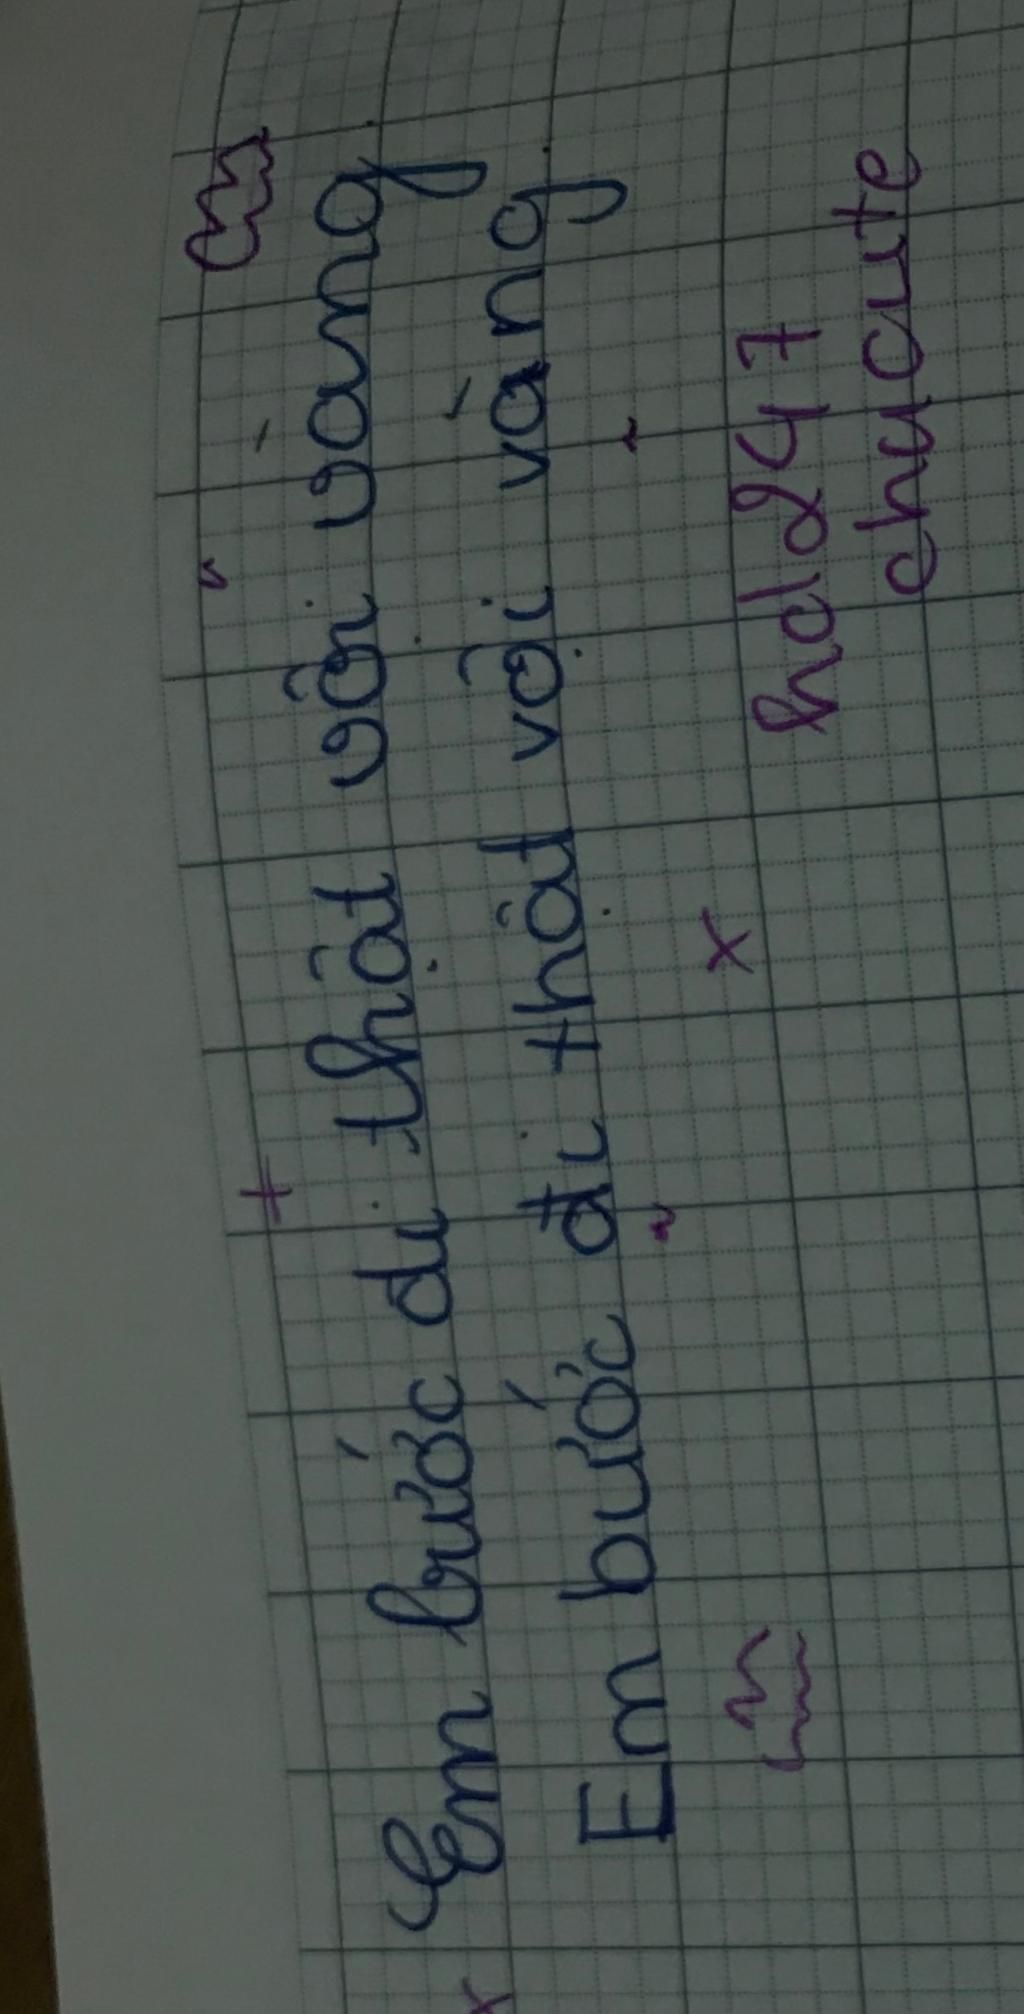 Em bước đi thật vội vàng
Em bước đi thật vội vàng
hd247
chu cute